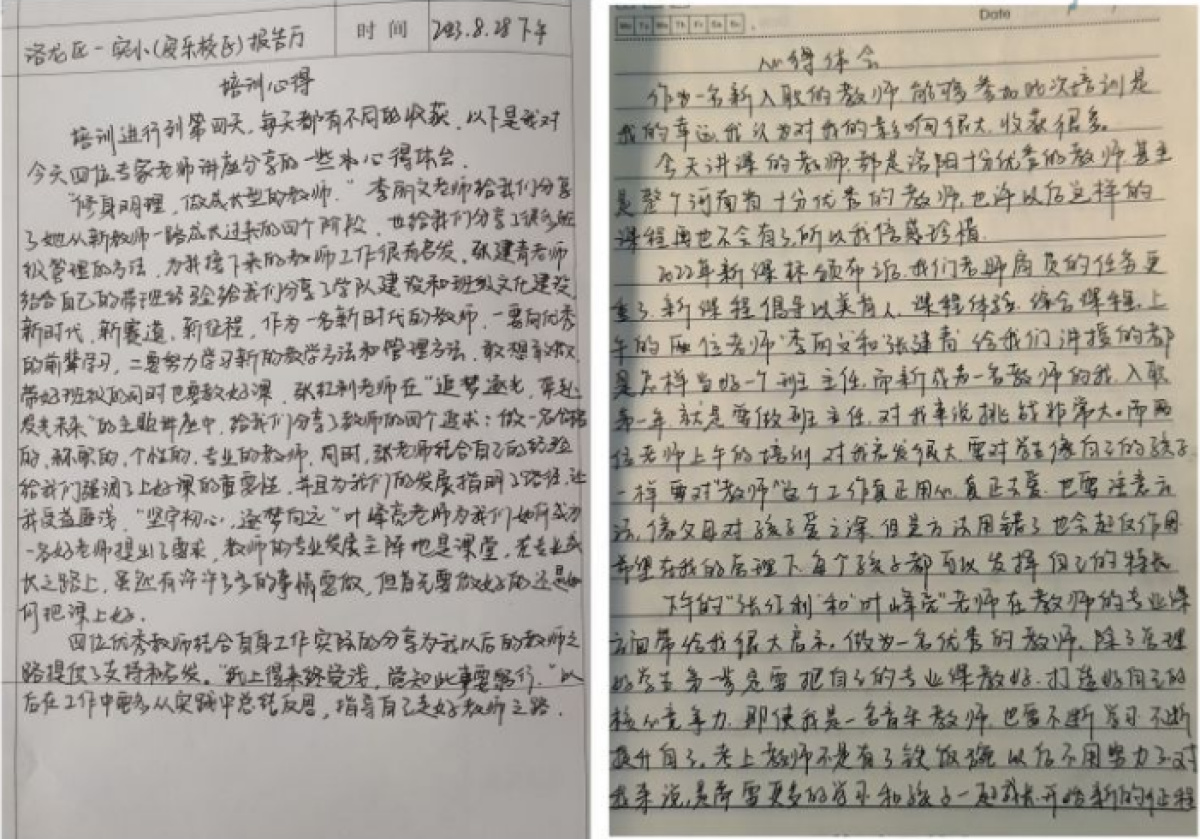 洛龙区一实小(安乐校区)报告厅 时间 2023.8.28下午
培训心得
培训进行到第四天,每天都有不同的收获,以下是我对
今天四位专家老师讲座分享的一些心得体会。
"修身明理,做成长型的教师。"李丽文老师给我们分享
了她从新教师一路成长过来的四个阶段,也给我们分享了很多班
级管理的方法,为我接下来的教师工作很有启发。张建青老师
结合自己的带班经验给我们分享了学队建设和班级文化建设
新时代,新赛道,新征程,作为一名新时代的教师,一要向优秀
的前辈学习,二要努力学习新的教学方法和管理方法,敢想敢做,
带好班级的同时也要教好课。张红利老师在"追梦逐光,带起
发光未来"的主题讲座中,给我们分享了教师的四个追求:做一名合格
的,称职的,个性的,专业的教师,同时,张老师结合自己的经验
给我们强调了上好课的重要性,并且为我们的发展指明了路径,让
我受益匪浅。"坚守初心,逐梦向远"叶峰亮老师为我们如何成为
一名好老师提出了要求,教师的专业发展主阵地是课堂,在专业成
长之路上,虽然有许许多多的事情要做,但首先要做好的还是如
何把课上好。
四位优秀教师结合自身工作实际的分享为我以后的教师之
路提供了支持和启发。"纸上得来终觉浅,觉知此事要躬行。"以
后在工作中要多从实践中总结反思,指导自己走好教师之路。
Mo Tu We Th Fr Sa Su Date
心得体会
作为一名新入职的教师,能够参加此次培训是
我的幸运,我认为对我的影响很大,收获很多。
今天讲课的教师,都是洛阳十分优秀的教师甚至
是整个河南省十分优秀的教师,也许以后这样的
课程再也不会有了,所以我倍感珍惜。
2022年新课标颁布后,我们老师肩负的任务更
重了,新课程倡导以美育人,课程体验,综合课程,上
午的两位老师"李丽文和"张建青"给我们讲授的都
是怎样当好一个班主任,而新成为一名教师的我,入职
第一年就是要做班主任,对我来说挑战非常大。而两
位老师上午的培训对我启发很大,要对学生像自己的孩子
一样,要对"教师"这个工作真正用心,真正去爱,也要注意方
法,像父母对孩子爱之深,但是方法用错了也会起反作用
希望在我的管理下,每个孩子都可以发挥自己的特长
下午的"张红利"和"叶峰亮"老师在教师的专业课
方面带给我很大启示,做为一名优秀的教师,除了管理
好学生第一步是要把自己的专业课教好,打造好自己的
核心竞争力,即使我是一名音乐教师,也要不断学习,不断
提升自己。考上教师不是有了铁饭碗,以后不用努力了,对
我来说,是需要更多的学习和孩子一起成长,开始新的征程